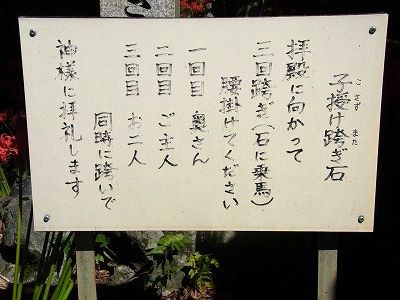 子授け跨ぎ石
こさず また
拝殿に向かって
三回跨ぎ(石に乗馬)
腰掛けてください
一回目 奥さん
二回目 ご主人
三回目 お二人
同時に跨いで
神様に拝礼します